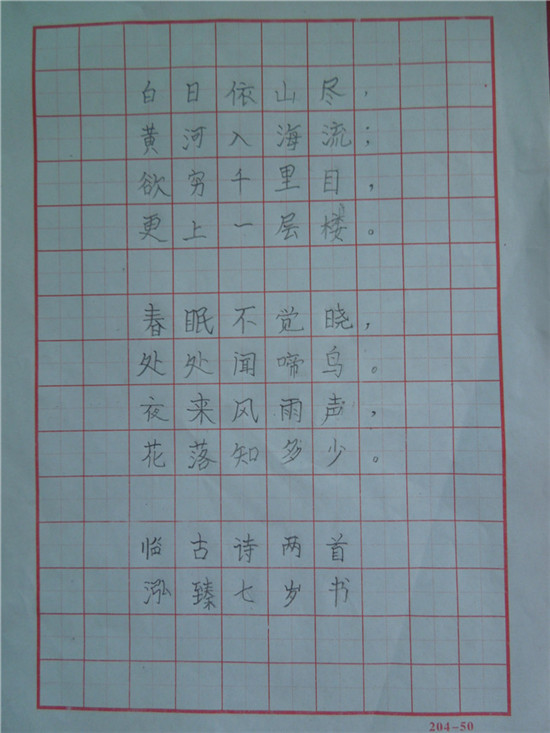 白日依山尽，
黄河入海流；
欲穷千里目，
更上一层楼。
春眠不觉晓，
处处闻啼鸟。
夜来风雨声，
花落知多少。
临古诗两首
泓臻七岁书
204-50